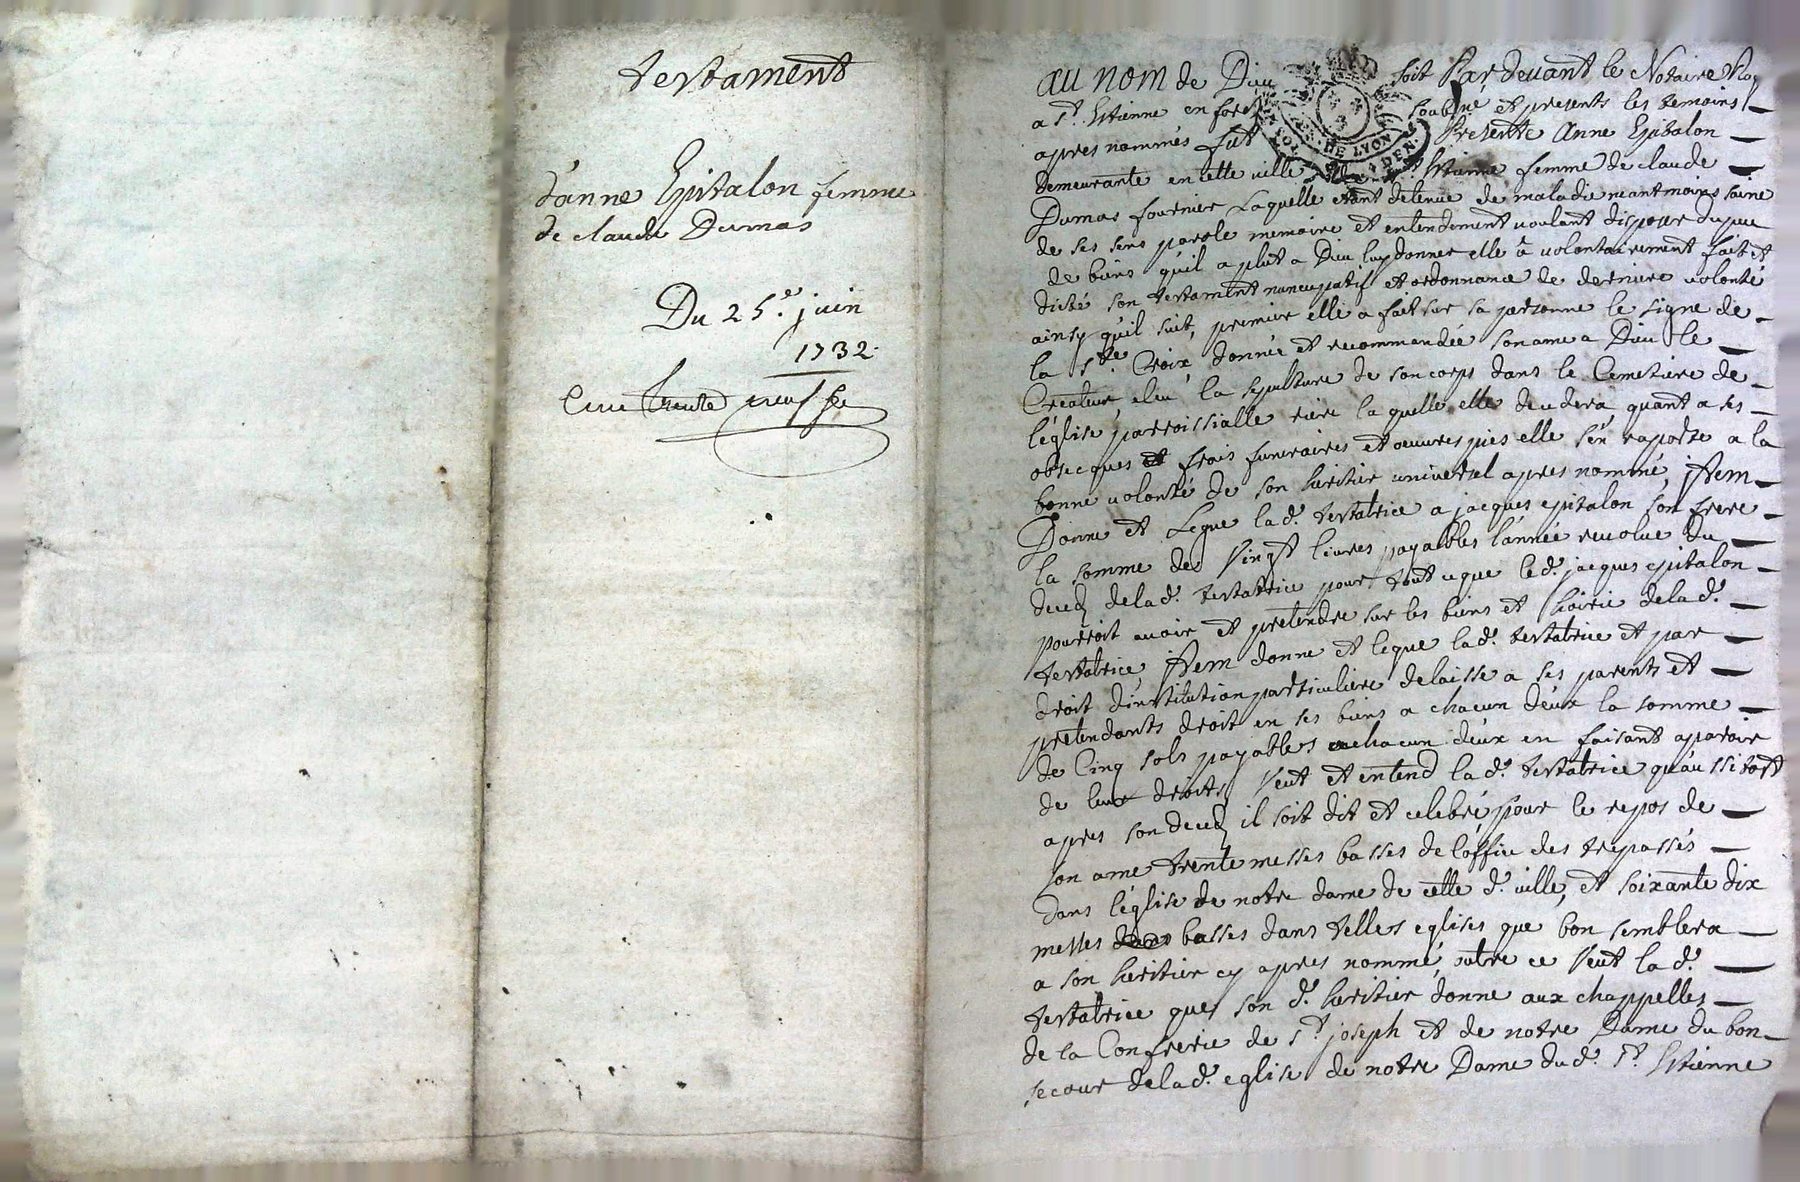 testament
d'anne Epitalon femme
de claude Dumas
Du 25.e juin
1732.
Cent trente neuf
au nom de Dieu soit Pardevant le Notaire Roy
a St. Estienne en forez soubsné et presents les temoins
apres nommés fut Presente Anne Epitalon
demeurante en cette ville St Estienne femme de claude
Dumas fournier Laquelle etant detenue de maladie neantmoins saine
de ses sens parole memoire et entendement voulant disposer du peu
de biens qu'il a plut a Dieu luy donner elle a volontairement fait et
dicté son testament nuncupatif et ordonnance de derniere volonté
ainsy qu'il suit, premier elle a fait sur sa personne le signe de
la Ste Croix, donnée et recommandée son ame a Dieu le
Createur, eleu la sepulture de son corps dans le Cemetiere de
l'église parroissialle riere laquelle elle decedera, quant a ses
obsecques et frais funeraires et oeuvres pies elle s'en raporte a la
bonne volonté de son heritier universel apres nommé, Item
Donne et Legue lad. testatrice a jacques epitalon son frere
la somme de Vingt livres payables l'année revolue du
deced delad. testatrice pour tout ce que led. jacques epitalon
pourroit avoir et pretendre sur les biens et hoirie delad.
testatrice, Item donne et legue lad. testatrice et par
droit d'institution particuliere delaisse a ses parents et
pretendants droit en ses biens a chacun d'eux la somme
de Cinq sols payables a chacun d'eux en faisant aparoir
de leur droits, Veut et entend lad. testatrice qu'aussitost
apres son deced il soit dit et celebré pour le repos de
son ame trente messes basses de l'office des trepassés
dans l'église de notre dame de cette d. ville, et soixante dix
messes basses dans telles eglises que bon semblera
a son heritier cy apres nommé, outre ce Veut lad.
testatrice que son d. heritier donne aux chappelles
de la Confrerie de St joseph et de notre Dame du bon
secour delad. eglise de notre Dame dud. St. Estienne